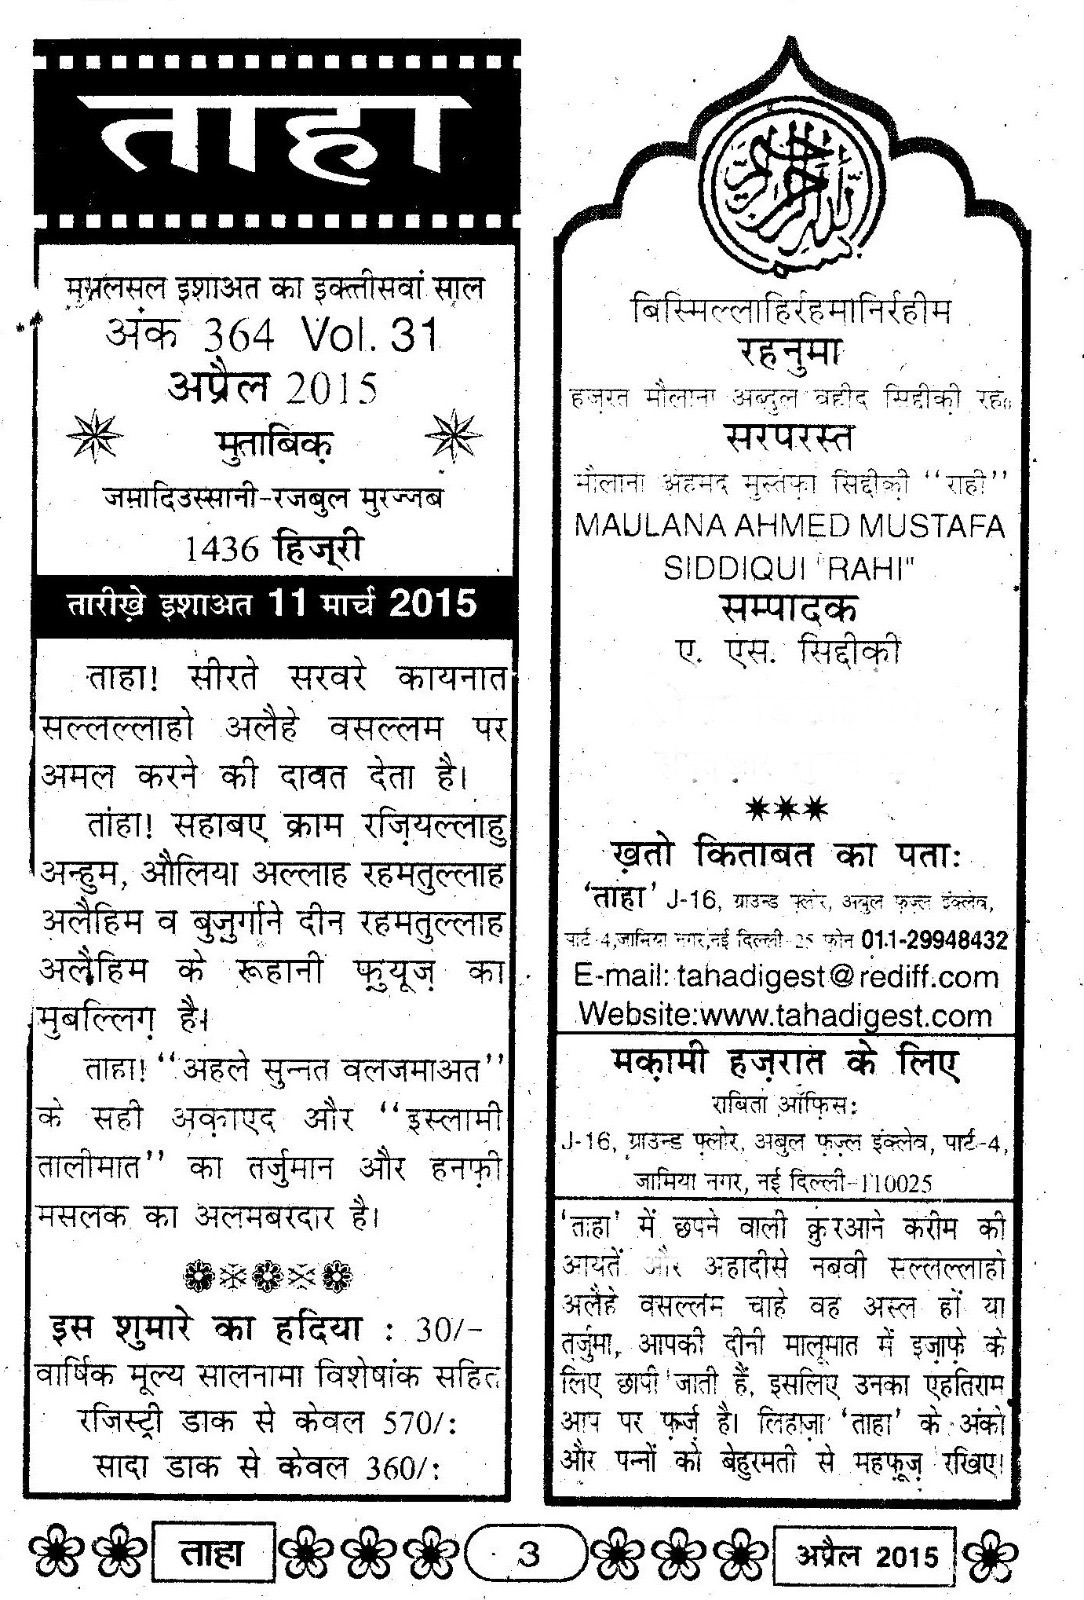 ताहा
मुसलसल इशाअत का इक्तीसवां साल
अंक 364 Vol. 31
अप्रैल 2015
मुताबिक़
जमादिउस्सानी-रजबुल मुरज्जब
1436 हिज्री
तारीखे़ इशाअत 11 मार्च 2015
ताहा! सीरते सरवरे कायनात
सल्लल्लाहो अलैहे वसल्लम पर
अमल करने की दावत देता है।
ताहा! सहाबए क्राम रज़ियल्लाहु
अन्हुम, औलिया अल्लाह रहमतुल्लाह
अलैहिम व बुजुर्गाने दीन रहमतुल्लाह
अलैहिम के रूहानी फुयूज़ का
मुबल्लिग़ है।
ताहा! ‘‘अहले सुन्नत वलजमाअत’’
के सही अक़ाएद और ‘‘इस्लामी
तालीमात’’ का तर्जुमान और हनफ़ी
मसलक का अलमबरदार है।
इस शुमारे का हदिया : 30/-
वार्षिक मूल्य सालनामा विशेषांक सहित
रजिस्ट्री डाक से केवल 570/:
सादा डाक से केवल 360/:
बिस्मिल्लाहिर्रहमानिर्रहीम
रहनुमा
हज़रत मौलाना अब्दुल वहीद सिद्दीक़ी रह॰
सरपरस्त
मौलाना अहमद मुस्तफ़ा सिद्दीक़ी ‘‘राही’’
MAULANA AHMED MUSTAFA
SIDDIQUI "RAHI"
सम्पादक
ए. एस. सिद्दीक़ी
ख़तो किताबत का पता:
‘ताहा’ J-16, ग्राउन्ड फ्लोर, अबुल फज़्ल इंक्लेव,
पार्ट-4,जामिया नगर,नई दिल्ली-25 फोन 011-29948432
E-mail: tahadigest@rediff.com
Website:www.tahadigest.com
मक़ामी हज़रात के लिए
राबिता ऑफ़िस:
J-16, ग्राउन्ड फ्लोर, अबुल फज़्ल इंक्लेव, पार्ट-4,
जामिया नगर, नई दिल्ली-110025
‘ताहा’ में छपने वाली कु़रआने करीम की
आयतें और अहादीसे नबवी सल्लल्लाहो
अलैहे वसल्लम चाहे वह अस्ल हों या
तर्जुमा, आपकी दीनी मालूमात में इज़ाफ़े के
लिए छापी जाती हैं, इसलिए उनका एहतिराम
आप पर फ़र्ज़ है। लिहाज़ा ‘ताहा’ के अंको
और पन्नों को बेहुरमती से महफ़ूज़ रखिए।
ताहा
3
अप्रैल 2015